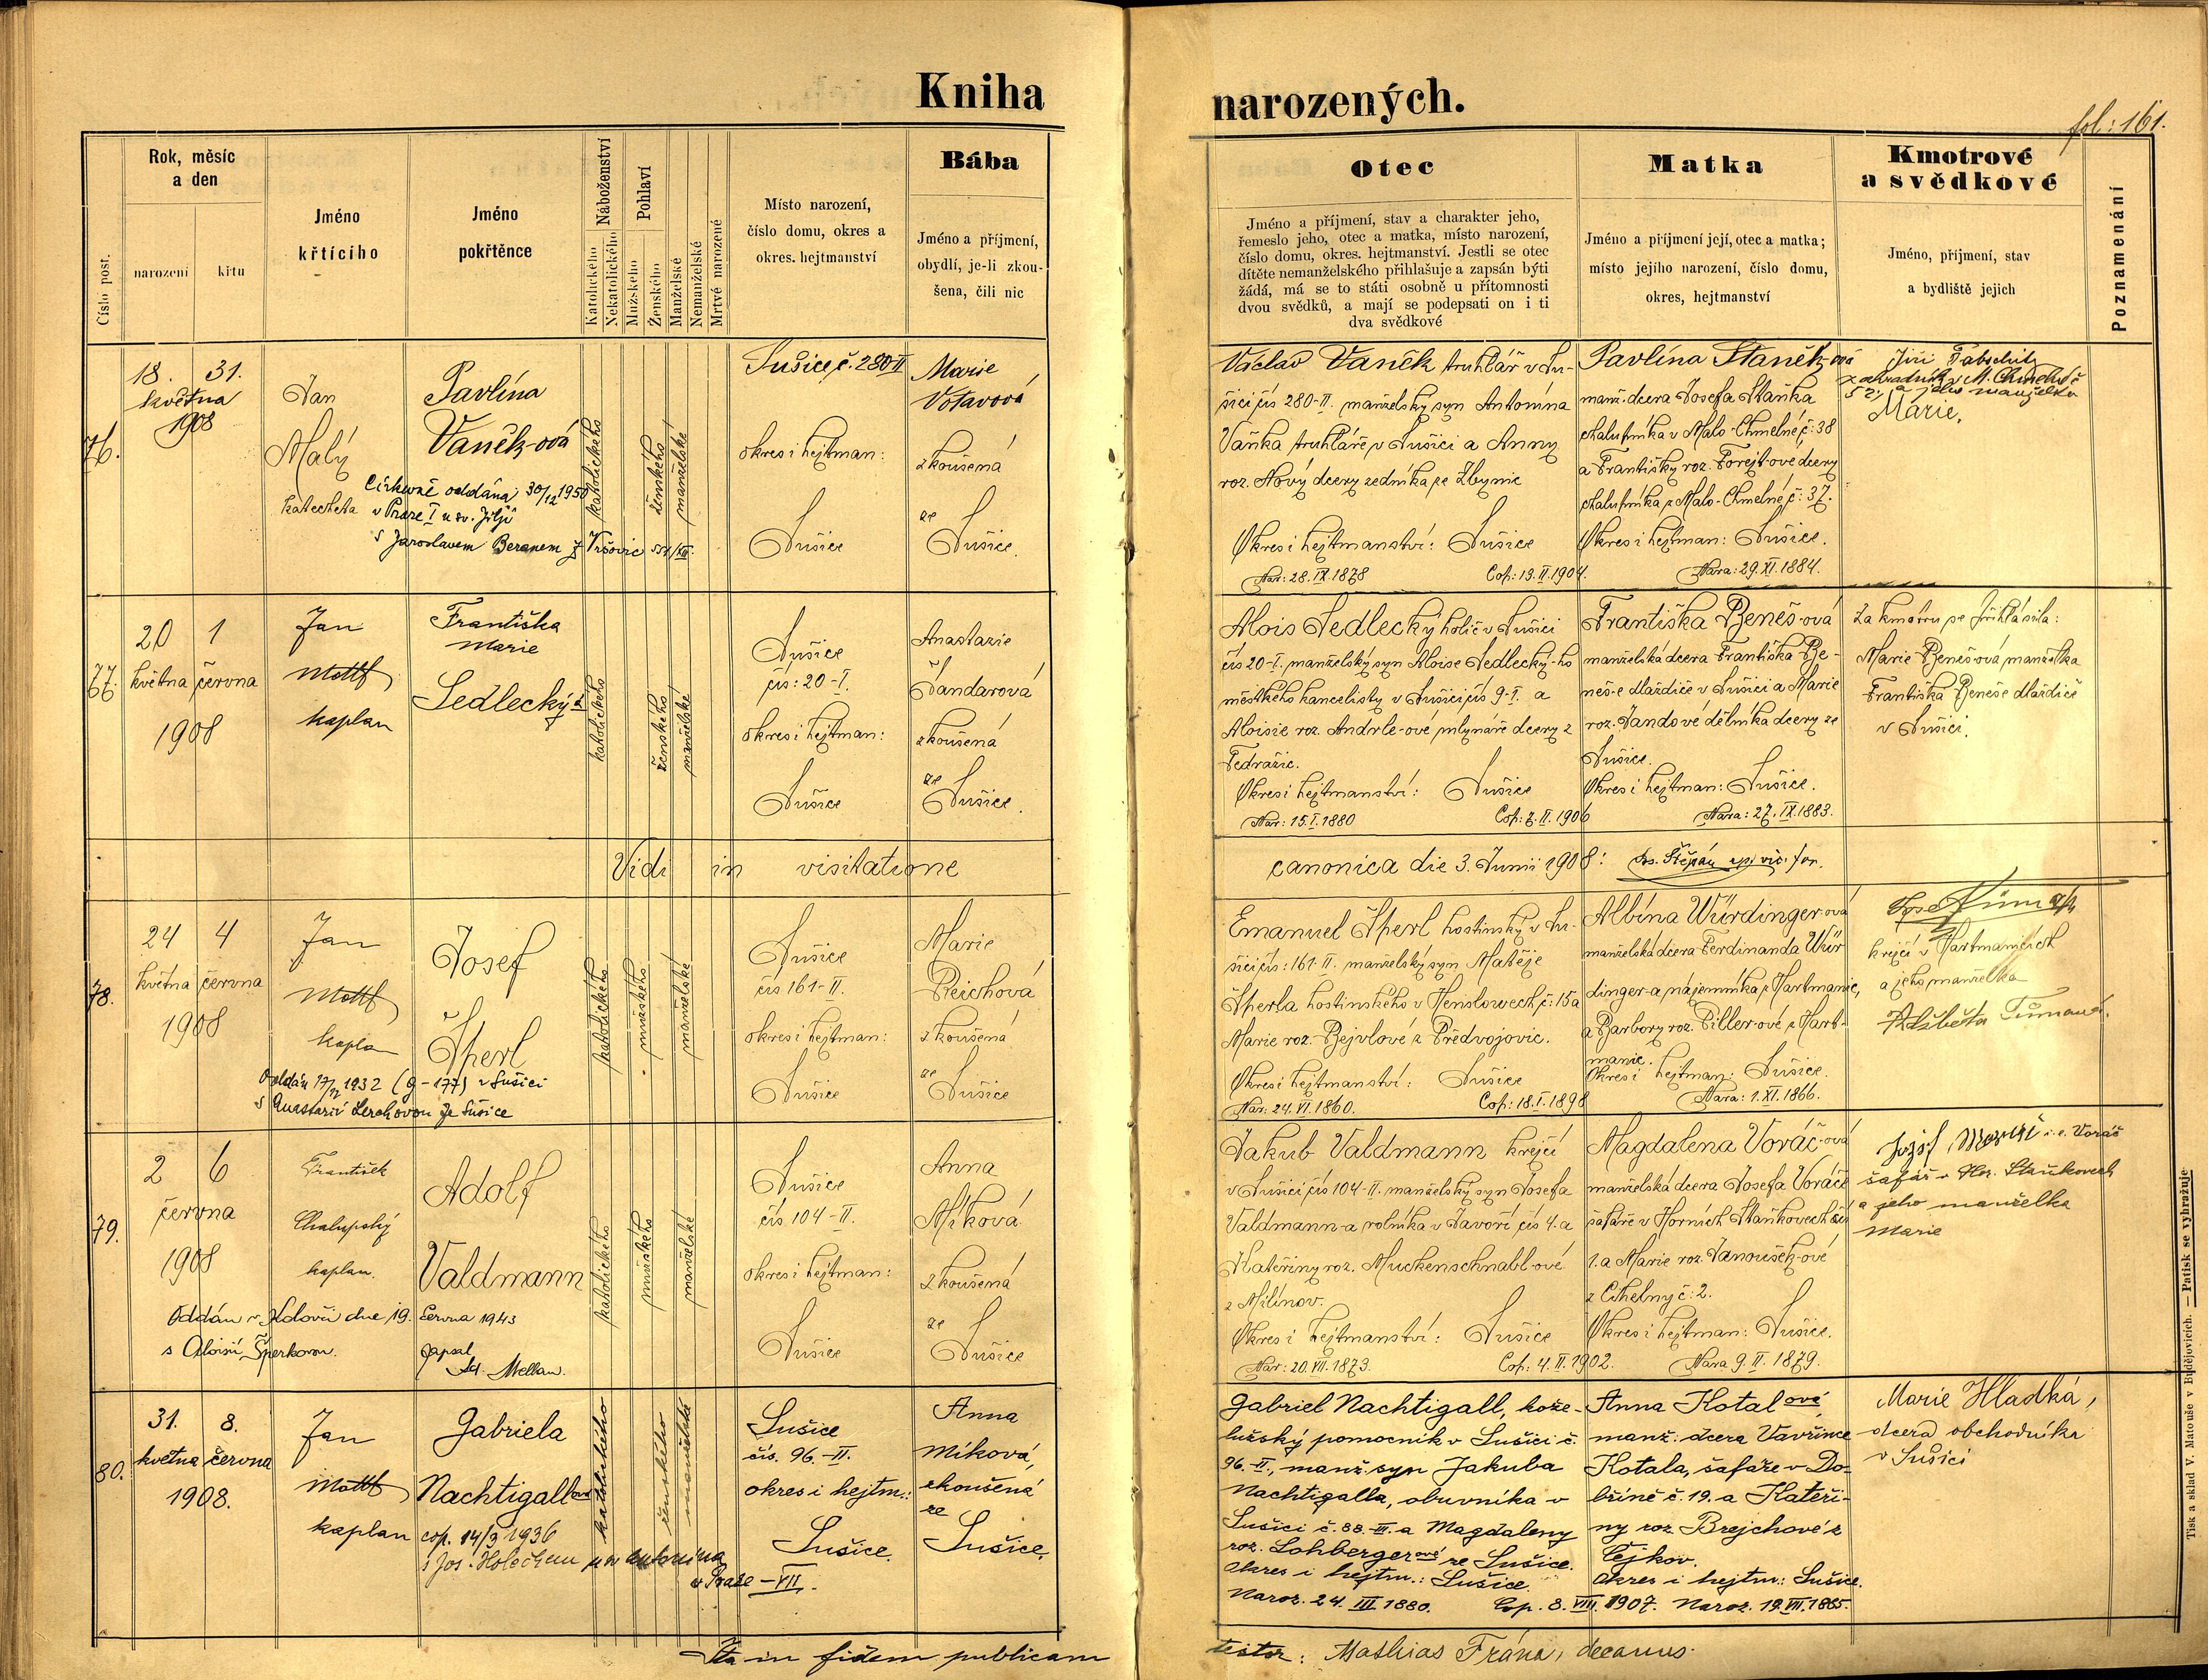 Kniha
narozených.
fol: 161.
Číslo post.
Rok, měsíc
a den
narození
křtu
Jméno
křtícího
Jméno
pokřtěnce
Náboženství
Katolického
Nekatolického
Pohlaví
Mužského
Ženského
Manželské
Nemanželské
Mrtvě narozené
Místo narození,
číslo domu, okres a
okres. hejtmanství
Bába
Jméno a příjmení,
obydlí, je-li zkou-
šena, čili nic
Otec
Jméno a příjmení, stav a charakter jeho,
řemeslo jeho, otec a matka, místo narození,
číslo domu, okres. hejtmanství. Jestli se otec
dítěte nemanželského přihlašuje a zapsán býti
žádá, má se to státi osobně u přítomnosti
dvou svědků, a mají se podepsati on i ti
dva svědkové
Matka
Jméno a příjmení její, otec a matka;
místo jejího narození, číslo domu,
okres, hejtmanství
Kmotrové
a svědkové
Jméno, příjmení, stav
a bydliště jejich
Poznamenání
76.
18. 31.
května
1908
Jan
Malý
katecheta
Pavlína
Vaněk-ová
Církevně oddána 30/12 1950
v Praze I u sv. Jiljí
s Jaroslavem Beranem z Vršovic
katolického
ženského
manželské
Sušice č. 280-II
okres i hejtman:
Sušice
Marie
Votavová
zkoušená
ze
Sušice.
Václav Vaněk truhlář v Su-
šici čís 280-II. manželský syn Antonína
Vaňka truhláře v Sušici a Anny
roz. Nový dcery zedníka ze Zbynic
Okres i hejtmanství: Sušice
Nar: 28.IX.1878 Cop: 13.II.1904.
Pavlína Staněk-ová
manž. dcera Josefa Staňka
chalupníka v Malo-Chmelné, č: 38
a Františky roz. Forejt-ové dcery
chalupníka z Malo-Chmelné, č: 37.
Okres i hejtman: Sušice.
Nara: 29.XI.1884.
Jiří
zahradník v M. Chmelné č
a jeho manželka
Marie,
77.
20 1
května června
1908
Jan
Mottl
kaplan
Františka
Marie
Sedlecký-á
katolického
ženského
manželské
Sušice
čís: 20-I.
okres i hejtman:
Sušice
Anastazie
Šandarová
zkoušená
ze
Sušice.
Alois Sedlecký holič v Sušici
čís 20-I. manželský syn Aloise Sedlecký-ho
městského kancelisty v Sušici čís 9-I. a
Aloisie roz. Andrle-ové mlynáře dcery z
Tedražic.
Okres i hejtmanství: Sušice
Nar: 15.I.1880 Cop: 7.II.1906
Františka Beneš-ová
manželská dcera Františka Be-
neš-e dlaždiče v Sušici a Marie
roz. Jandové dělníka dcery ze
Sušice.
Okres i hejtman: Sušice.
Nara: 27.IX.1883.
Za kmotru se přihlásila:
Marie Beneš-ová manželka
Františka Beneše dlaždiče
v Sušici.
Vidi in visitatione
canonica die 3. Junii 1908: Štěpán
78.
24 4
května června
1908
Jan
Mottl
kaplan
Josef
Šperl
Oddán 17/ 1932 (g-177) v Sušici
s Anastazií Lerchovou ze Sušice
katolického
mužského
manželské
Sušice
čís 161-II.
okres i hejtman:
Sušice
Marie
Reichová
zkoušená
ze
Sušice
Emanuel Šperl hostinský v Su-
šici čís: 161-II. manželský syn Matěje
Šperla hostinského v Henslowech, č: 15 a
Marie roz. Bejvlové z Předvojovic.
Okres i hejtmanství: Sušice
Nar: 24.VI.1860. Cop: 18.I.1898
Albína Würdinger-ová
manželská dcera Ferdinanda Wür
dinger-a nájemníka z Hartmanic,
a Barbory roz. Piller-ové z Hart-
manic.
Okres i hejtman: Sušice.
Nara: 1.XI.1866.
krejčí v Hartmanicích
a jeho manželka
Alžběta
79.
2 6
června
1908
František
Chalupský
kaplan.
Adolf
Valdmann
Oddán v dne 19. června 1943
s Aloisií Šperkovou.
Zapsal
katolického
mužského
manželské
Sušice
čís 104-II.
okres i hejtman:
Sušice
Anna
Míková
zkoušená
ze
Sušice
Jakub Valdmann krejčí
v Sušici čís 104-II. manželský syn Josefa
Valdmann-a rolníka v Javoří čís 4. a
Kateřiny roz. Muckenschnabl-ové
z Milínov.
Okres i hejtmanství: Sušice
Nar: 20.VII.1873. Cop: 4.II.1902.
Magdalena Voráč-ová
manželská dcera Josefa Voráče
šafáře v Horních Staňkovech čís
1. a Marie roz. Janoušek-ové
z Cihelny č: 2.
Okres i hejtman: Sušice.
Nara 9.II.1879.
Josef Voráč
šafář v Hor. Staňkovech
a jeho manželka
Marie
80.
31. 8.
května června
1908.
Jan
Mottl
kaplan
Gabriela
Nachtigallová
cop. 14/3 1936
s Jos. Holečkem u sv Antonína
v Praze - VII.
katolického
ženského
manželské
Sušice
čís. 96.-II.
okres i hejtm.:
Sušice.
Anna
Míková,
zkoušená
ze
Sušice.
Gabriel Nachtigall, kože-
lužský pomocník v Sušici č.
96.-II., manž. syn Jakuba
Nachtigalla, obuvníka v
Sušici č. 88.-III. a Magdaleny
roz. Lohbergerové ze Sušice.
Okres i hejtm.: Sušice.
Naroz. 24. III. 1880. Cop. 8. VIII. 1907.
Anna Kotalová
manž. dcera Vavřince
Kotala, šafáře v Do-
bříně č. 19. a Kateři-
ny roz. Brejchové z
Čejkov.
Okres i hejtm: Sušice.
Naroz. 19.VII.1885.
Marie Hladká,
dcera obchodníka
v Sušici
Ita in fidem publicam
testor: Mathias Frána, decanus.
Tisk a sklad V. Matouše v Budějovicích. — Patisk se vyhražuje